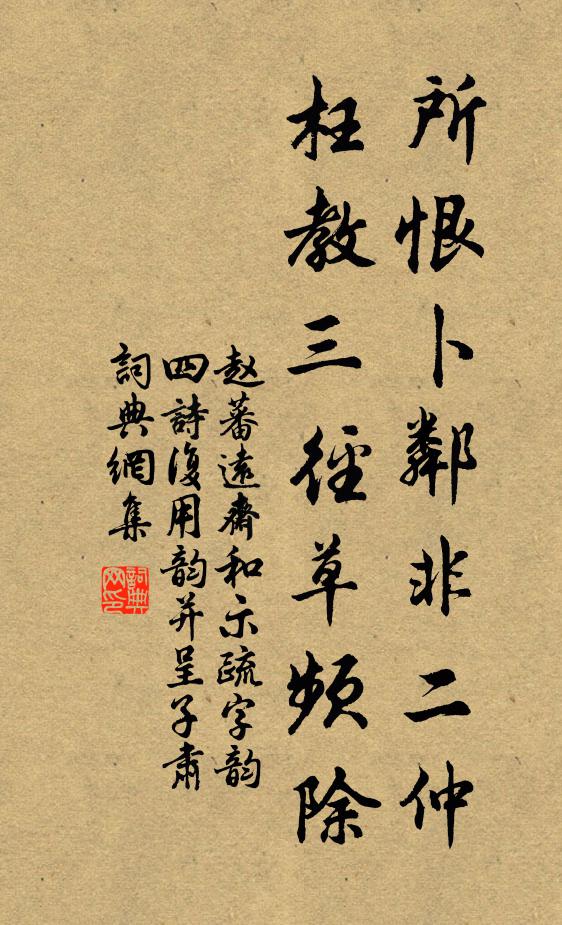 所恨卜鄰非二仲
枉教三徑草頻除
赵蕃遠齋和示疏字韵
四詩復用韵并呈子肅
詞典網集
詞典网印